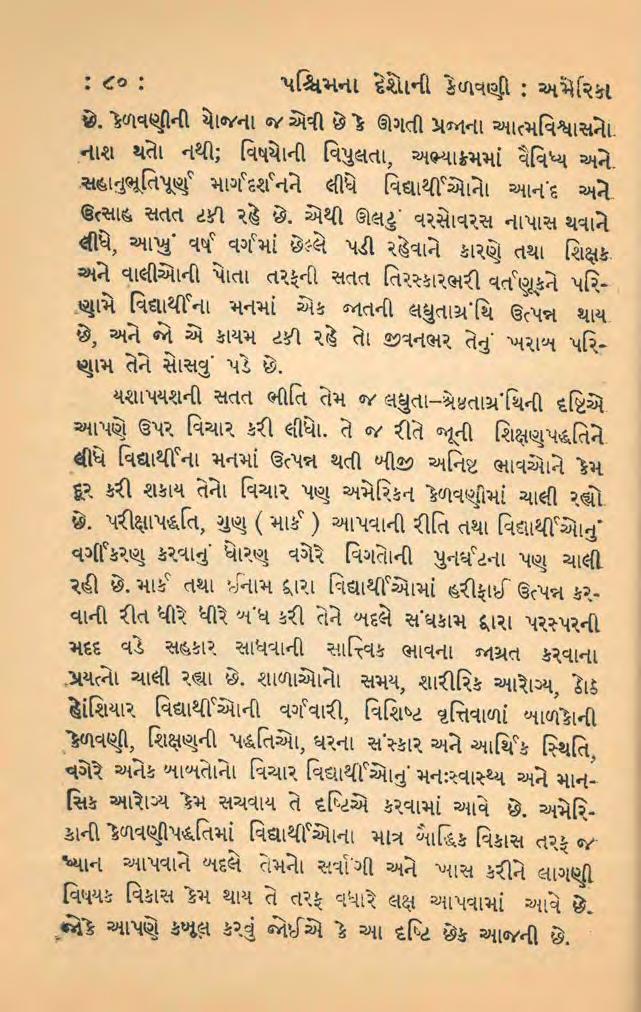 : ૮૦ : પશ્ચિમના દેશોની કેળવણી : અમેરિકા
છે. કેળવણીની યોજના જ એવી છે કે ઊગતી પ્રજાના આત્મવિશ્વાસનો
નાશ થતો નથી; વિષયોની વિપુલતા, અભ્યાક્રમમાં વૈવિધ્ય અને
સહાનુભૂતિપૂર્ણ માર્ગદર્શનને લીધે વિદ્યાર્થીઓનો આનંદ અને
ઉત્સાહ સતત ટકી રહે છે. એથી ઊલટું વરસોવરસ નાપાસ થવાને
લીધે, આખું વર્ષ વર્ગમાં છેલ્લે પડી રહેવાને કારણે તથા શિક્ષક
અને વાલીઓની પોતા તરફની સતત તિરસ્કારભરી વર્તણૂકને પરિ-
ણામે વિદ્યાર્થીના મનમાં એક જાતની લઘુતાગ્રંથિ ઉત્પન્ન થાય
છે, અને જો એ કાયમ ટકી રહે તો જીવનભર તેનું ખરાબ પરિ-
ણામ તેને સોસવું પડે છે.
યશાપયશની સતત ભીતિ તેમ જ લઘુતા–શ્રેષ્ઠતાગ્રંથિની દૃષ્ટિએ
આપણે ઉપર વિચાર કરી લીધો. તે જ રીતે જૂની શિક્ષણપદ્ધતિને
લીધે વિદ્યાર્થીના મનમાં ઉત્પન્ન થતી બીજી અનિષ્ટ ભાવઓને કેમ
દૂર કરી શકાય તેનો વિચાર પણ અમેરિકન કેળવણીમાં ચાલી રહ્યો
છે. પરીક્ષાપદ્ધતિ, ગુણ ( માર્ક ) આપવાની રીતિ તથા વિદ્યાર્થીઓનું
વર્ગીકરણ કરવાનું ધોરણ વગેરે વિગતોની પુનર્ઘટના પણ ચાલી
રહી છે. માર્ક તથા ઈનામ દ્વારા વિદ્યાર્થીઓમાં હરીફાઈ ઉત્પન્ન કર-
વાની રીત ધીરે ધીરે બંધ કરી તેને બદલે સંઘકામ દ્વારા પરસ્પરની
મદદ વડે સહકાર સાધવાની સાત્ત્વિક ભાવના જાગ્રત કરવાના
પ્રયત્નો ચાલી રહ્યા છે. શાળાઓનો સમય, શારીરિક આરોગ્ય, ઠોઠ
હોંશિયાર વિદ્યાર્થીઓની વર્ગવારી, વિશિષ્ટ વૃત્તિવાળાં બાળકોની
કેળવણી, શિક્ષણની પદ્ધતિઓ, ઘરના સંસ્કાર અને આર્થિક સ્થિતિ,
વગેરે અનેક બાબતોનો વિચાર વિદ્યાર્થીઓનું મનઃસ્વાસ્થ્ય અને માન-
સિક આરોગ્ય કેમ સચવાય તે દષ્ટિએ કરવામાં આવે છે. અમેરિ-
કાની કેળવણીપદ્ધતિમાં વિદ્યાર્થીઓના માત્ર બૌદ્ધિક વિકાસ તરફ જ
ધ્યાન આપવાને બદલે તેમનો સર્વાંગી અને ખાસ કરીને લાગણી
વિષયક વિકાસ કેમ થાય તે તરફ વધારે લક્ષ આપવામાં આવે છે.
જોકે આપણે કબૂલ કરવું જોઈએ કે આ દષ્ટિ છેક આજની છે.